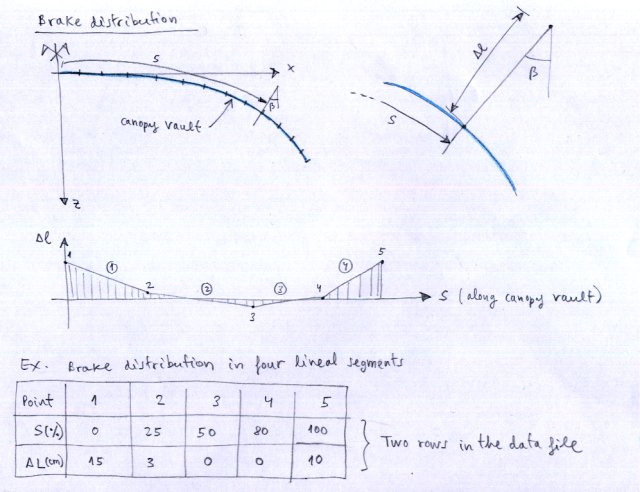 Brake distribution
S
x
β
canopy vault
z
Δl
β
S
Δl
1
①
2
②
3
③
4
④
5
S (along canopy vault)
Ex. Brake distribution in four lineal segments
Point 1 2 3 4 5
S(%) 0 25 50 80 100
ΔL(cm) 15 3 0 0 10
Two rows in the data file